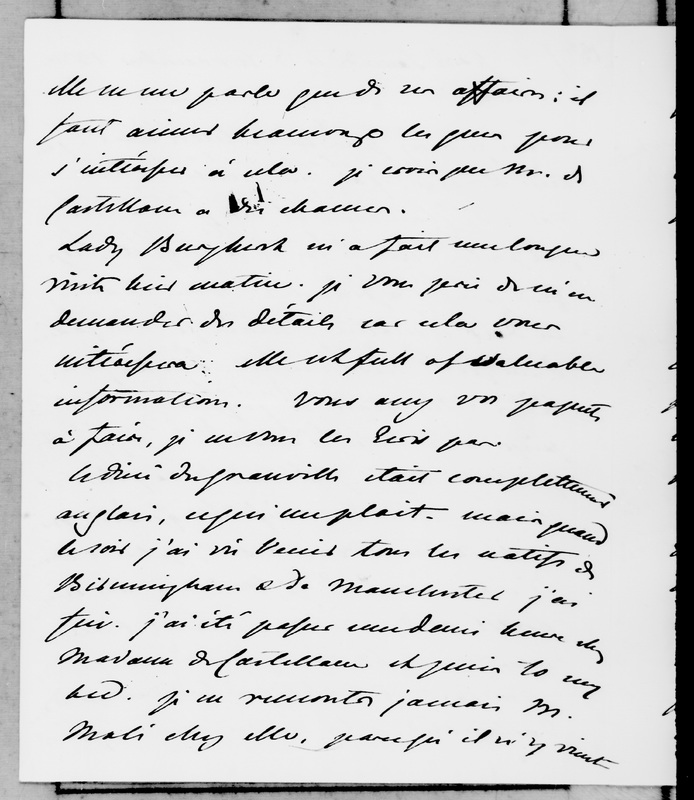 elle ne me parle que de ses affaires; il
faut aimer beaucoup les gens pour
s'intéresser à cela. je crois que M. de
Castellane a du chasser.
Lady Burghersh m'a fait une longue
visite hier matin. je vous prie de m'en
demander des détails car cela vous
intéressera. elle est full of valuable
informations. Vous avez vos paquets
à faire, je ne vous les écris pas.
le diné des Granville était complettement
anglais, ce qui me plait. mais quand
le soir j'ai vû venir tous les natifs de
Birmingham & de Manchester j'ai
fui. j'ai été passer une demi heure chez
Madame de Castellane et puis to my
bed. je ne rencontre jamais M.
Molé chez elle, parcequ'il n'y vient